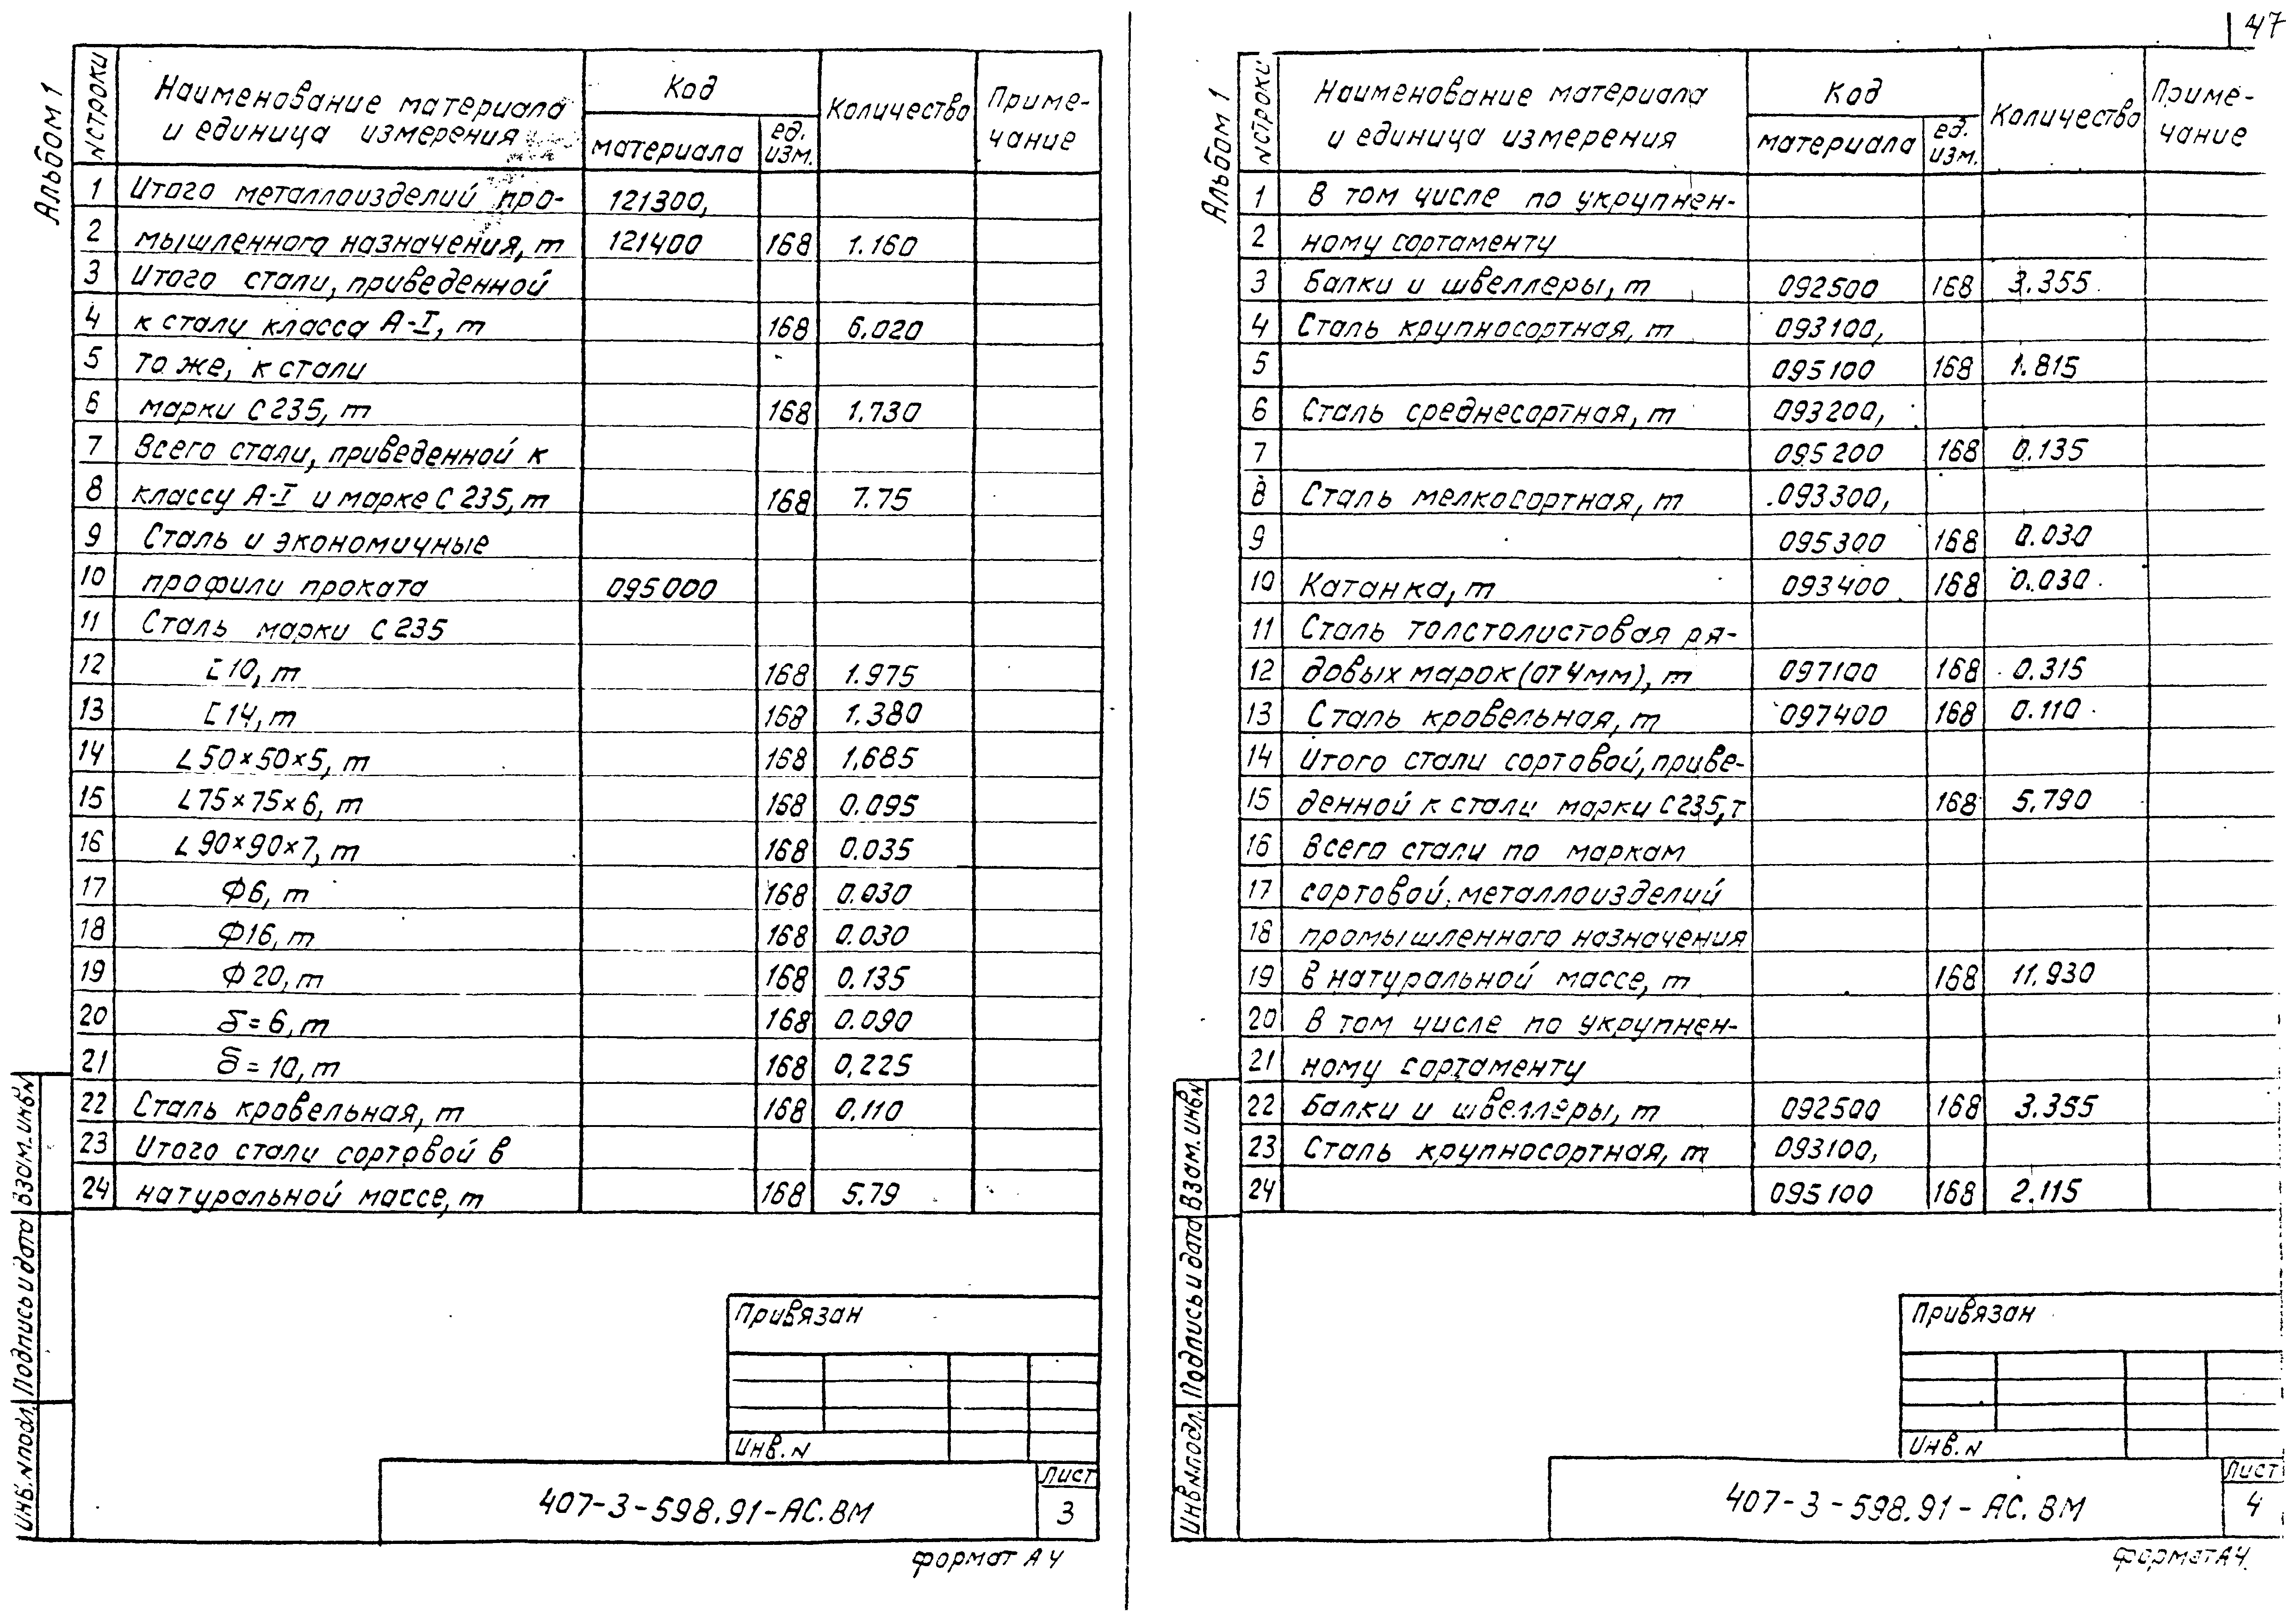 47
Альбом 1
N строки Наименование материала и единица измерения Код материала ед. изм. Количество Примечание
1 Итого металлоизделий про- 121300,
2 мышленного назначения, т 121400 168 1.160
3 Итого стали, приведенной
4 к сталу класса А-I, т 168 6.020
5 то же, к стали
6 марки С 235, т 168 1.730
7 Всего стали, приведенной к
8 классу А-I и марке С 235, т 168 7.75
9 Сталь и экономичные
10 профили проката 095000
11 Сталь марки С 235
12 [10, т 168 1.975
13 [14, т 168 1.380
14 L50×50×5, т 168 1.685
15 L75×75×6, т 168 0.095
16 L90×90×7, т 168 0.035
17 Ф6, т 168 0.030
18 Ф16, т 168 0.030
19 Ф20, т 168 0.135
20 δ=6, т 168 0.090
21 δ=10, т 168 0,225
22 Сталь кровельная, т 168 0.110
23 Итого стали сортовой в
24 натуральной массе, т 168 5.79
Привязан
Инв. N
407-3-598.91-АС.ВМ
Лист
3
формат А4
Инв. N подл. Подпись и дата Взам. инв N
Альбом 1
N строки Наименование материала и единица измерения Код материала ед. изм. Количество Примечание
1 В том числе по укрупнен-
2 ному сортаменту
3 Балки и швеллеры, т 092500 168 3.355
4 Сталь крупносортная, т 093100,
5 095100 168 1.815
6 Сталь среднесортная, т 093200,
7 095200 168 0.135
8 Сталь мелкосортная, т 093300,
9 095300 168 0.030
10 Катанка, т 093400 168 0.030
11 Сталь толстолистовая ря-
12 довых марок (от 4мм), т 097100 168 0.315
13 Сталь кровельная, т 097400 168 0.110
14 Итого стали сортовой, приве-
15 денной к стали марки С 235, т 168 5.790
16 Всего стали по маркам
17 сортовой, металлоизделий
18 промышленного назначения
19 в натуральной массе, т 168 11.930
20 В том числе по укрупнен-
21 ному сортаменту
22 Балки и швеллеры, т 092500 168 3.355
23 Сталь крупносортная, т 093100,
24 095100 168 2.115
Привязан
Инв. N
407-3-598.91-АС.ВМ
Лист
4
формат А4
Инв N подл. Подпись и дата Взам. инв N